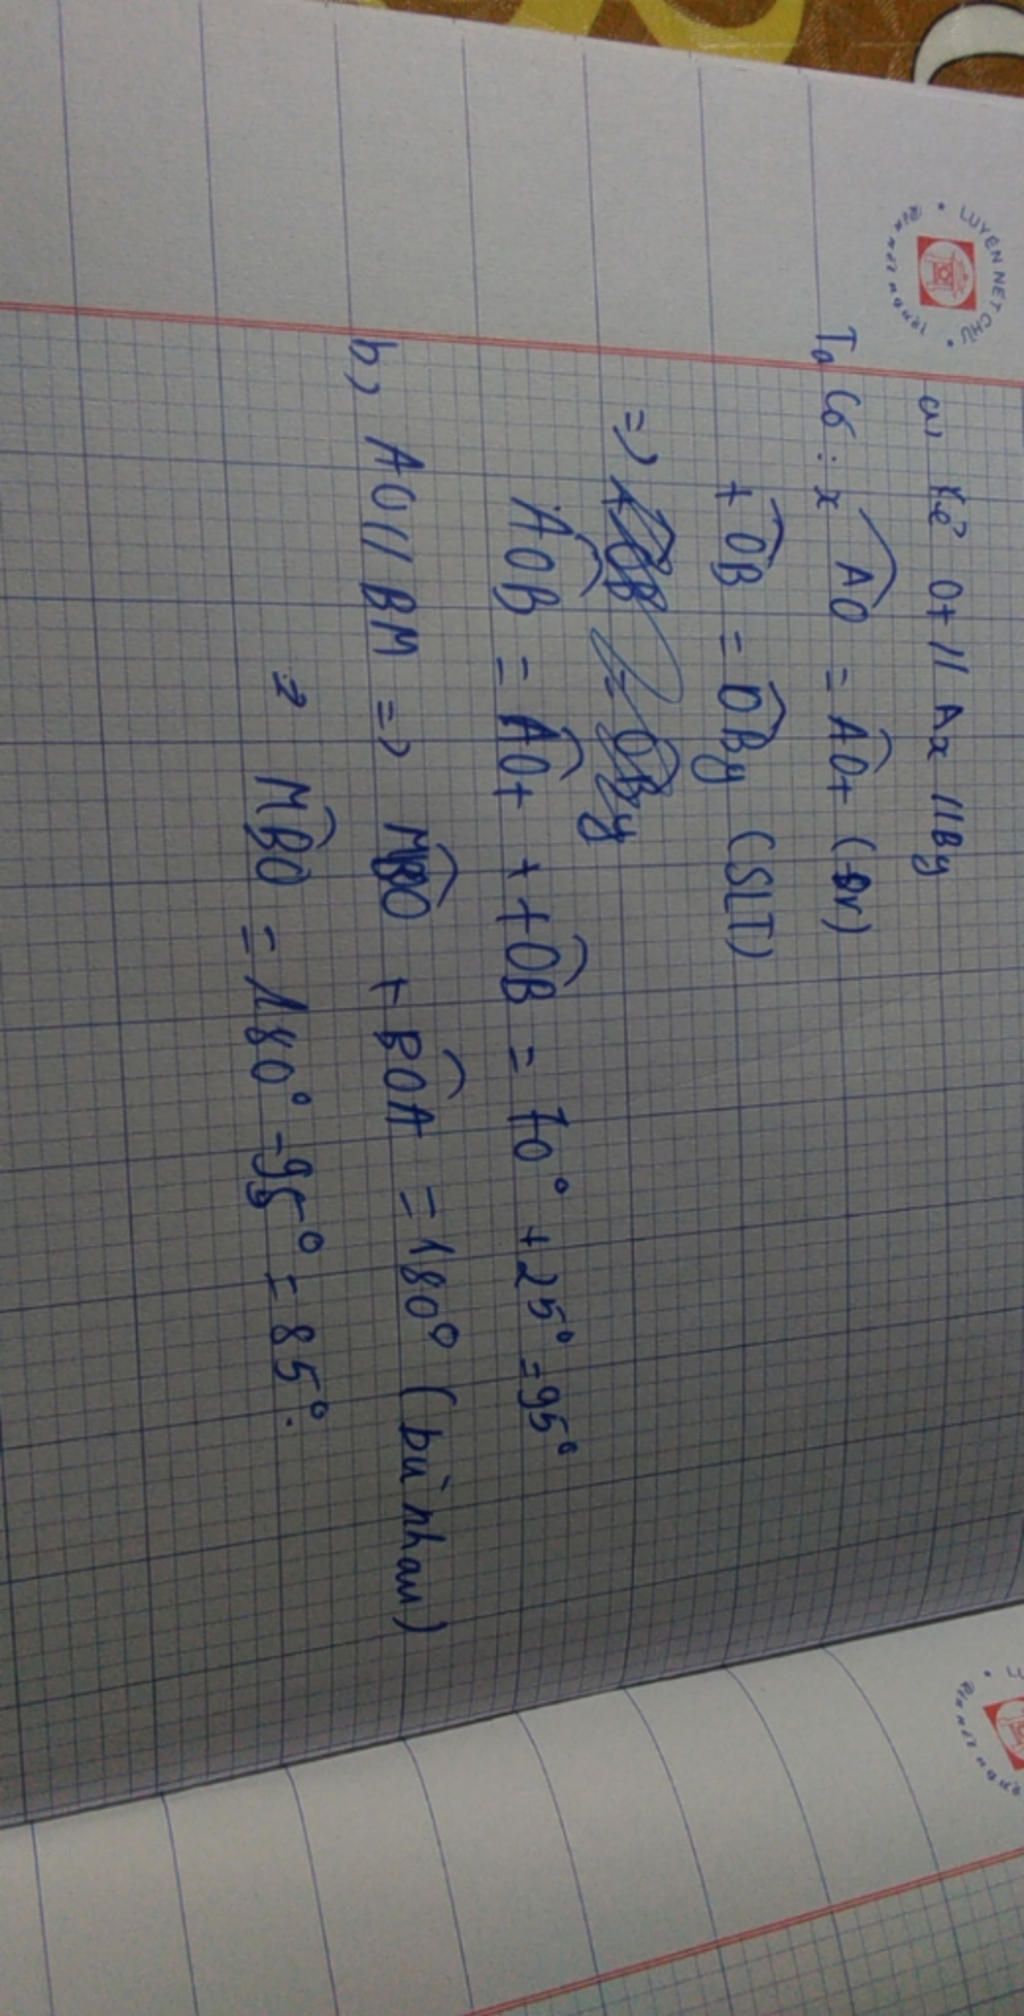 LUYỆN NÉT CHỮ
RÈN NẾT NGƯỜI
a) Kẻ Ot // Ax // By
Ta có: xAO = AOt (SLT)
tOB = OBy (SLT)
=> AOB = OBy
AOB = AOt + tOB = 70° + 25° = 95°
b) AO // BM => MBO + BOA = 180° (bù nhau)
=> MBO = 180° - 95° = 85°.